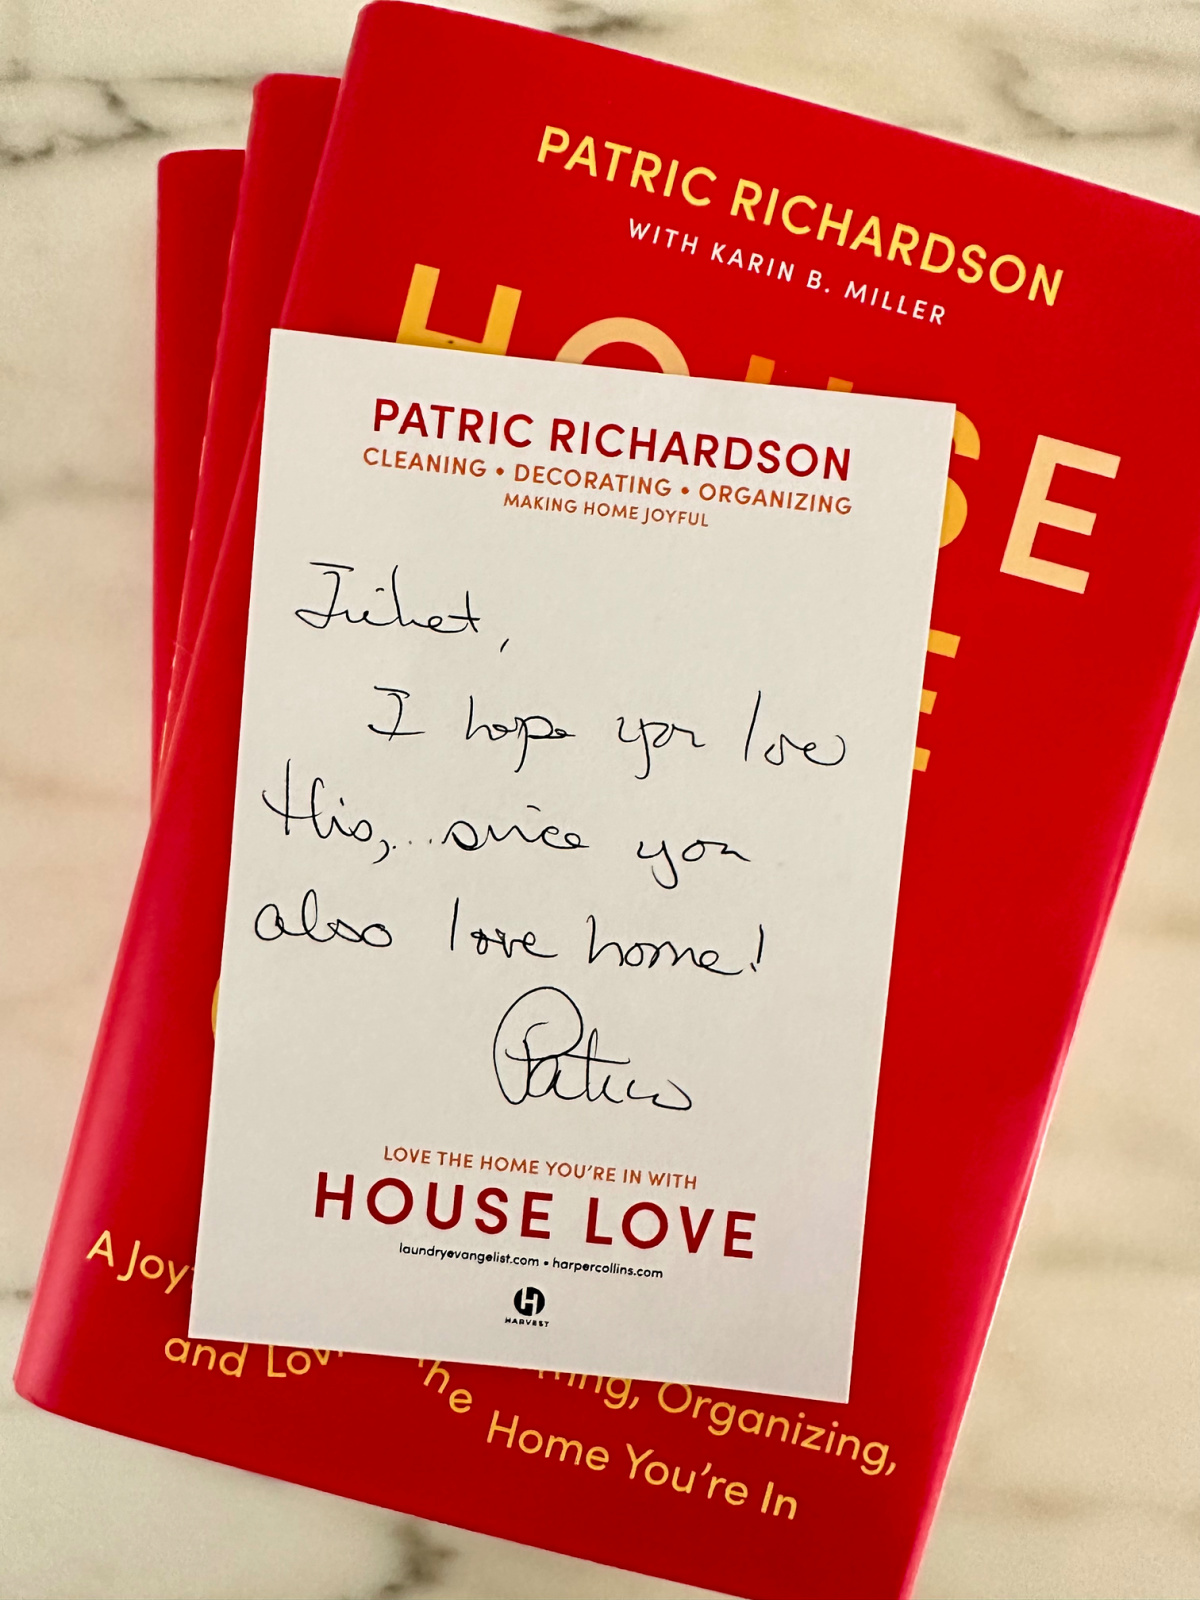 PATRIC RICHARDSON
WITH KARIN B. MILLER
HOUSE
E
PATRIC RICHARDSON
CLEANING • DECORATING • ORGANIZING
MAKING HOME JOYFUL
Juliet,
I hope you love
this, since you
also love home!
Patric
LOVE THE HOME YOU'RE IN WITH
HOUSE LOVE
laundryevangelist.com • harpercollins.com
H
HARVEST
A Joy
ning, Organizing,
and Lov he Home You're In